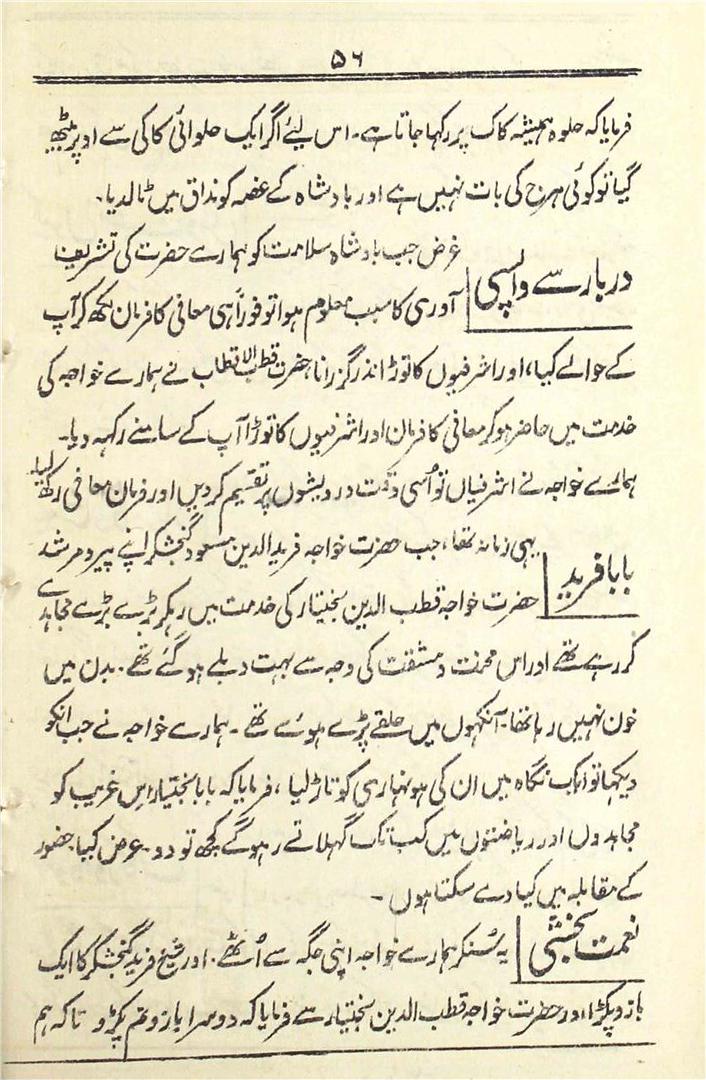 ۵۶
فرمایا کہ حلوہ ہمیشہ کاک پر رکہا جاتا ہے۔ اس لیئے اگر ایک حلوائی کاکی سے اوپر بیٹھ
گیا تو کوئی ہرج کی بات نہیں ہے اور بادشاہ کے غصہ کو مذاق میں ٹالدیا۔
دربار سے واپسی
غرض جب بادشاہ سلامت کو ہمارے حضرت کی تشریف
آوری کا سبب معلوم ہوا تو فوراً ہی معافی کا فرمان لکھ کر آپ
کے حوالے کیا، اور اشرفیوں کا توڑا نذر گزرانا، حضرت قطب الاقطاب نے ہمارے خواجہ کی
خدمت میں حاضر ہو کر معافی کا فرمان اور اشرفیوں کا توڑا آپ کے سامنے رکہہ دیا۔
ہمارے خواجہ نے اشرفیاں تو اُسی وقت درویشوں پر تقسیم کر دیں اور فرمان معافی رکھ لیا۔
بابا فرید
یہی زمانہ تھا، جب حضرت خواجہ فرید الدین مسعود گنجشکر اپنے پیر و مرشد
حضرت خواجہ قطب الدین بختیار کی خدمت میں رہکر بڑے بڑے مجاہدے
کر رہے تھے اور اس محنت و مشقت کی وجہ سے بہت دبلے ہو گئے تھے۔ بدن میں
خون نہیں رہا تھا۔ آنکہوں میں حلقے پڑے ہوئے تھے۔ ہمارے خواجہ نے جب انکو
دیکہا تو ایک نگاہ میں ان کی ہونہاری کو تاڑ لیا، فرمایا کہ بابا بختیار اس غریب کو
مجاہدوں اور ریاضتوں میں کب تک گہلاتے رہو گے کچھ تو دو۔ عرض کیا حضور
کے مقابلہ میں کیا دے سکتا ہوں۔
نعمت بخشی
یہ سُنکر ہمارے خواجہ اپنی جگہ سے اُٹھے۔ اور شیخ فرید گنجشکر کا ایک
بازو پکڑا، اور حضرت خواجہ قطب الدین بختیار سے فرمایا کہ دوسرا بازو تم پکڑو تاکہ ہم